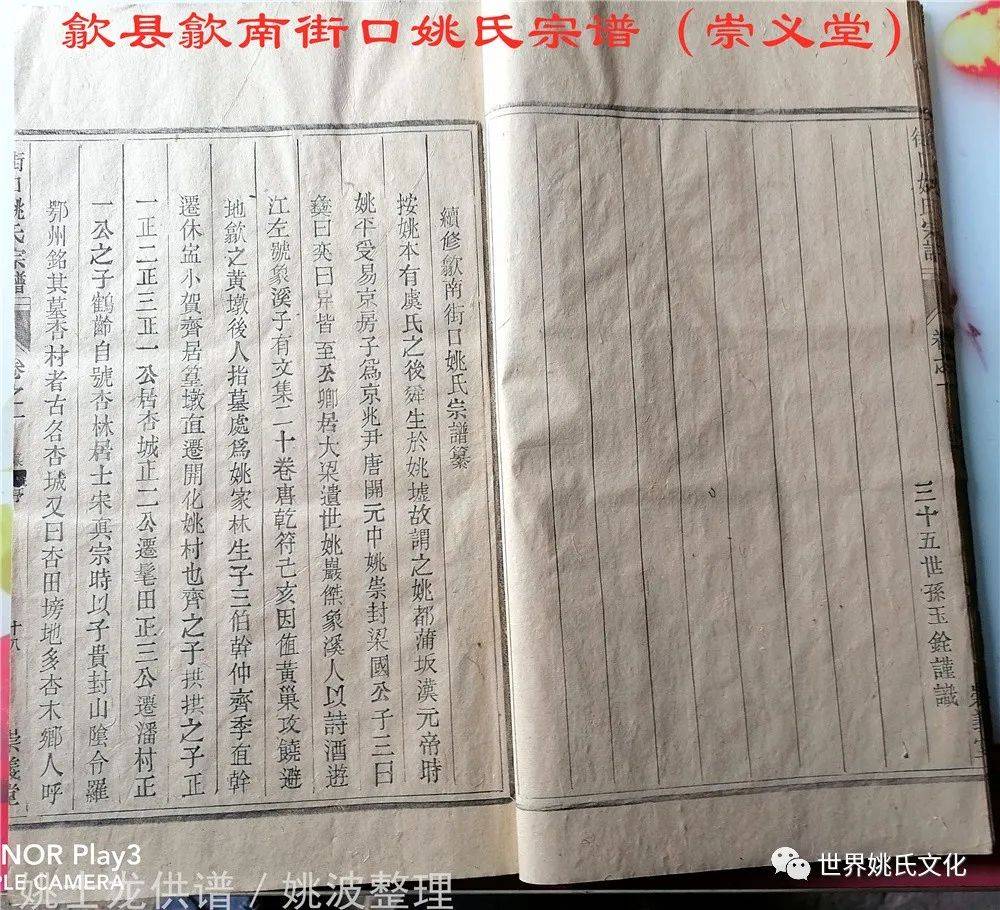 歙县歙南街口姚氏宗谱（崇义堂）
三十五世孫玉銓謹識
續修歙南街口姚氏宗譜纂
按姚本有虞氏之後舜生於姚墟故謂之姚都蒲坂漢元帝時
姚平受易京房子為京兆尹唐開元中姚崇封梁國公子三曰
彝曰奕曰异皆至公卿居大梁遺世姚巖傑象溪人以詩酒遊
江左號象溪子有文集二十卷唐乾符己亥因值黃巢攻饒避
地歙之黃墩後人指墓處為姚家林生子三伯幹仲齊季直幹
遷休盇小賀齊居篁墩直遷開化姚村也齊之子拱拱之子正
一正二正三正一公居杏城正二公遷髦田正三公遷潘村正
一公之子鶴齡自號杏林居士宋真宗時以子貴封山陰令羅
鄂州銘其墓杏村者古名杏城又曰杏田塝地多杏木鄉人呼
街口姚氏宗譜
卷之一
十八
崇義堂
NOR Play3
PLE CAMERA
姚士龙供谱 / 姚波整理
世界姚氏文化